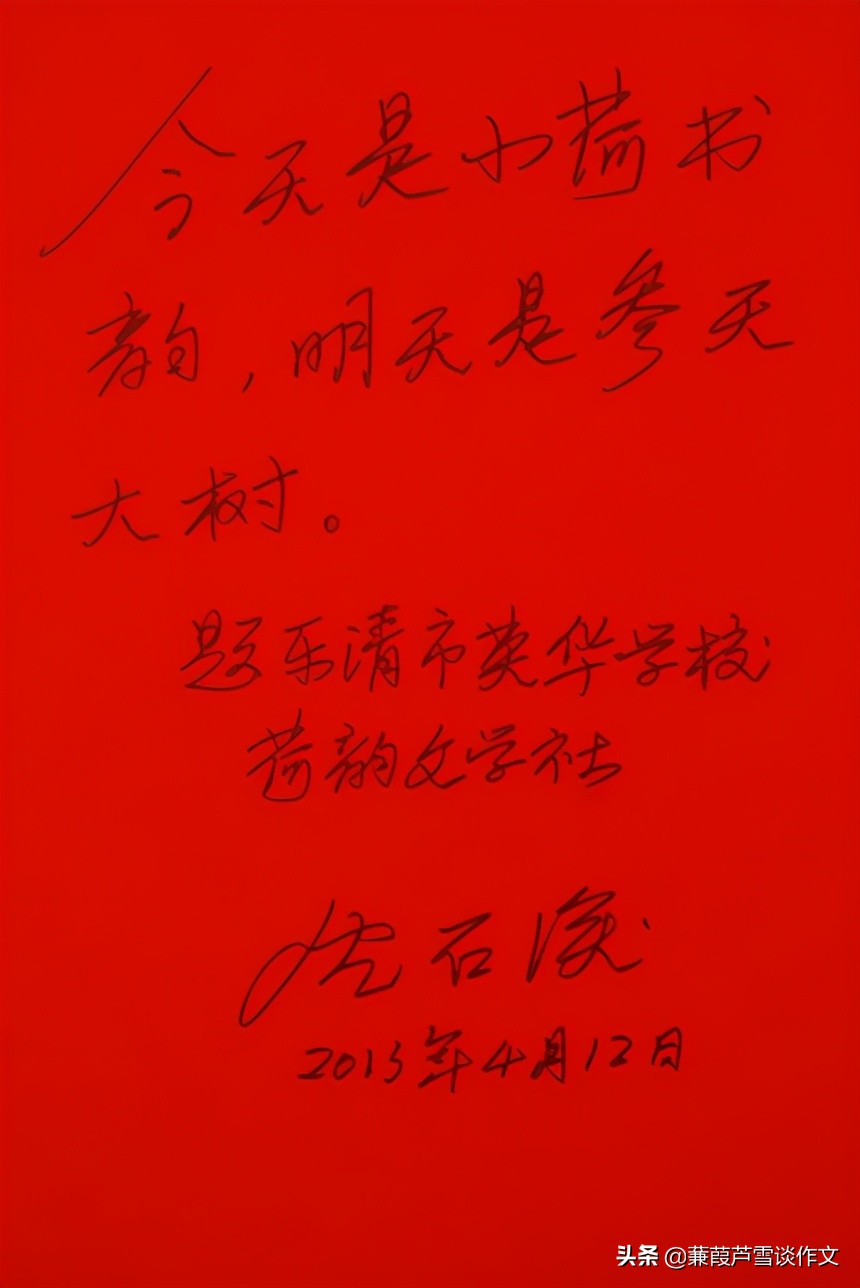 今天是小荷书
韵，明天是参天
大树。
题乐清市英华学校
荷韵文学社
沈石溪
2013年4月12日
头条 @蒹葭芦雪谈作文